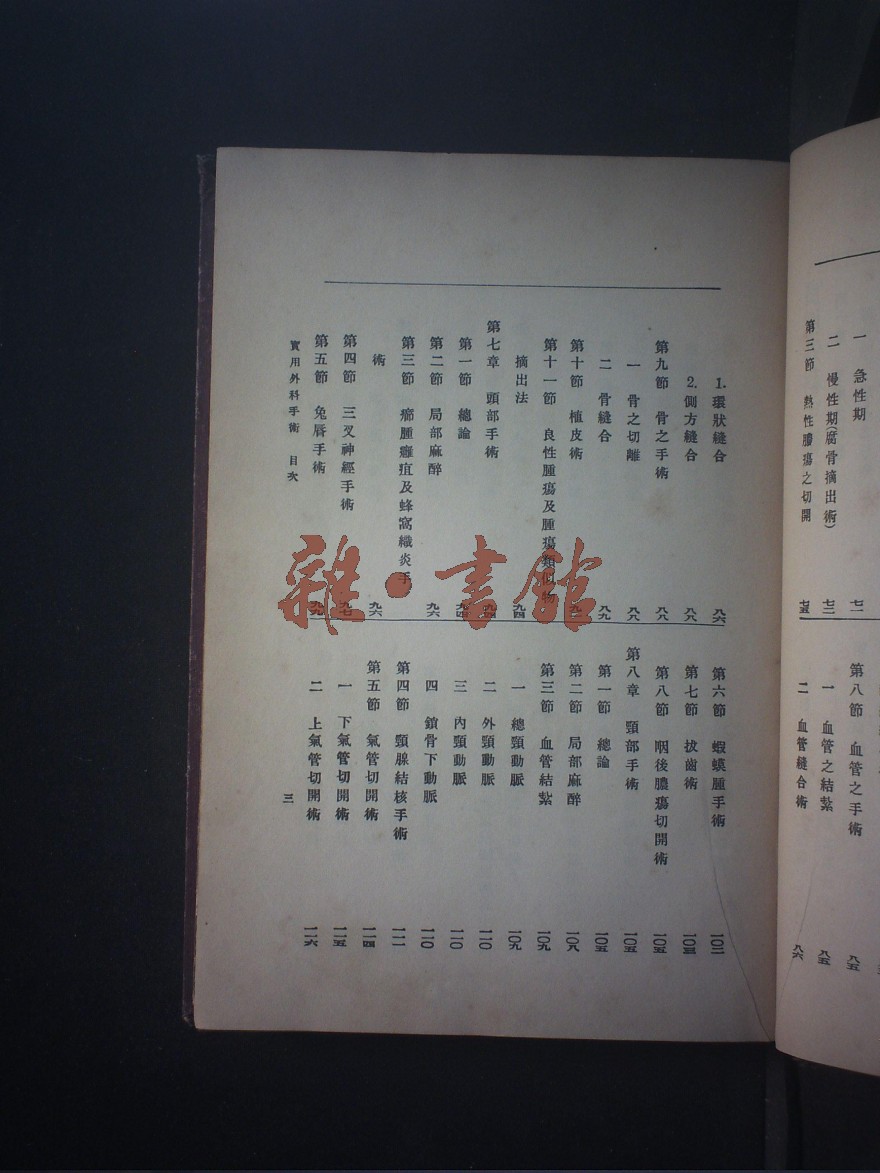 一 急性期 七二
二 慢性期(腐骨摘出術) 七三
第三節 熱性膿瘍之切開 七五
第八節 血管之手術 八五
一 血管之結紮 八五
二 血管縫合術 八六
1.環狀縫合 八六
2.側方縫合 八八
第九節 骨之手術 八八
一 骨之切離 八八
二 骨縫合 八九
第十節 植皮術
第十一節 良性腫瘍及腫瘍類似物
摘出法 九四
第七章 頭部手術 九四
第一節 總論 九四
第二節 局部麻醉 九六
第三節 癤腫癰疽及蜂窩織炎手
術 九六
第四節 三叉神經手術 九七
第五節 兔唇手術 九九
第六節 蝦蟆腫手術 一〇二
第七節 拔齒術 一〇三
第八節 咽後膿瘍切開術 一〇五
第八章 頸部手術 一〇五
第一節 總論 一〇五
第二節 局部麻醉 一〇八
第三節 血管結紮 一〇九
一 總頸動脈 一〇九
二 外頸動脈 一一〇
三 內頸動脈 一一〇
四 鎖骨下動脈 一一〇
第四節 頸腺結核手術 一一一
第五節 氣管切開術 一一四
一 下氣管切開術 一一五
二 上氣管切開術 一一六
實用外科手術 目次 三
雜·書館